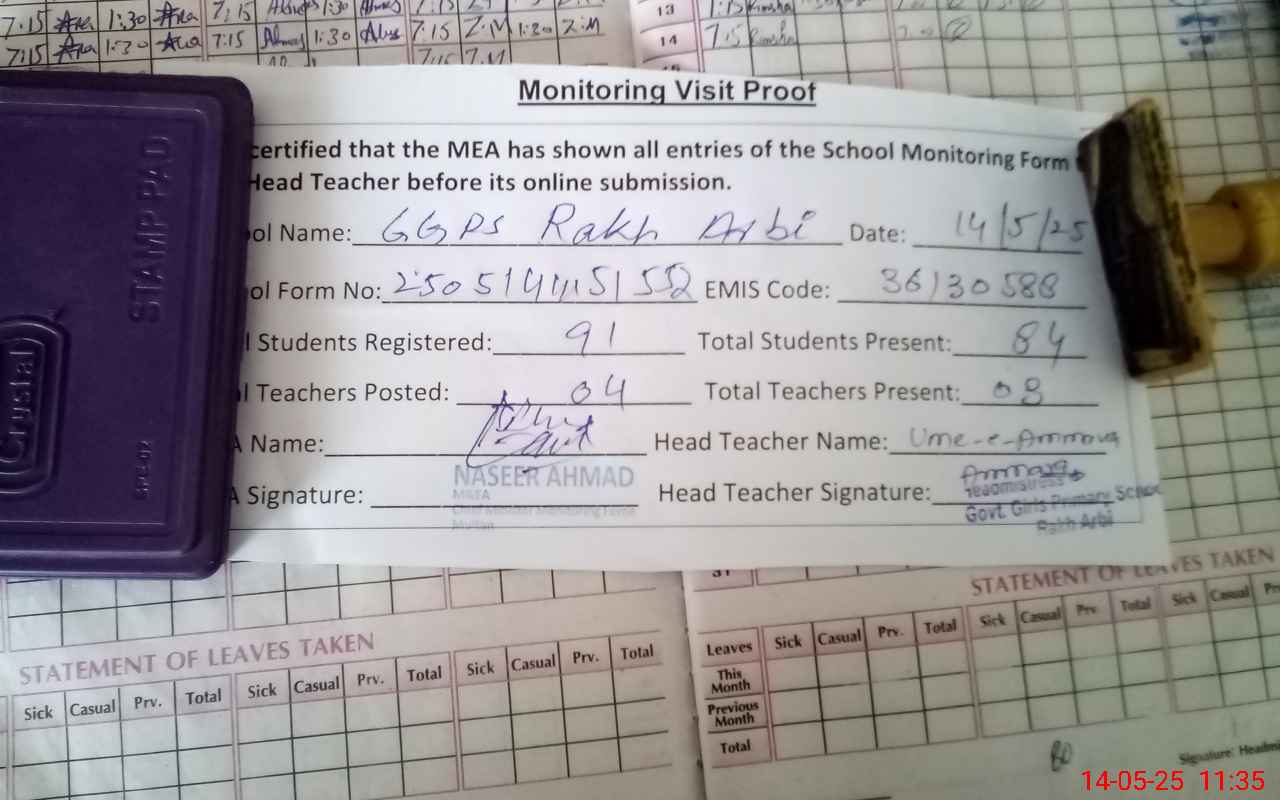 7:15 1:30 7:15 1:30 7:15
7:15 1:30 7:15 1:30 7:15 Z.M 1:30 Z.M
7:15 Z.M
13
14 7:5
Monitoring Visit Proof
certified that the MEA has shown all entries of the School Monitoring Form
Head Teacher before its online submission.
ol Name: GGPS Rakh Arbi Date: 14/5/25
ol Form No: EMIS Code: 36130588
l Students Registered: 91 Total Students Present: 84
l Teachers Posted: 04 Total Teachers Present:
A Name: Head Teacher Name: Ume-e-Ammara
NASEER AHMAD
MEA
A Signature: Head Teacher Signature: Ammara
Headmistress
Govt. Girls Primary School
Rakh Arbi
Chief Minister Monitoring Force
Multan
STAMP PAD
Crystal
STATEMENT OF LEAVES TAKEN
Sick Casual Prv. Total Sick Casual Prv. Total Sick Casual Prv. Total
STATEMENT OF LEAVES TAKEN
Leaves Sick Casual Prv. Total Sick Casual Prv. Total Sick Casual
This Month
Previous Month
Total
Signature:
14-05-25 11:35